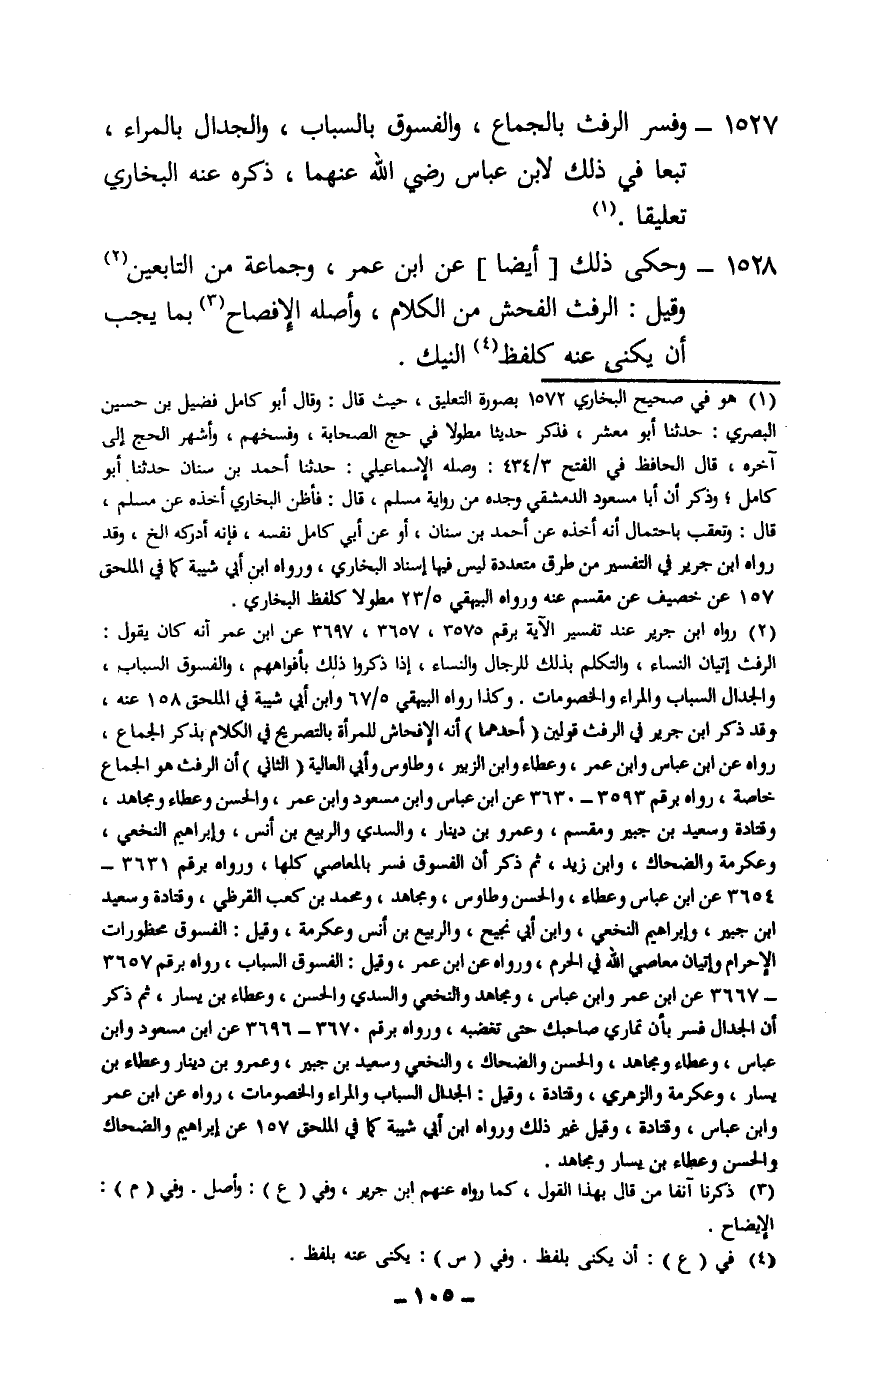 ١٥٢٧ – وفسر الرفث بالجماع ، والفسوق بالسباب ، والجدال بالمراء ،
تبعا في ذلك لابن عباس رضي الله عنهما ، ذكره عنه البخاري
تعليقا .(١)
١٥٢٨ – وحكى ذلك [ أيضا ] عن ابن عمر ، وجماعة من التابعين(٢)
وقيل : الرفث الفحش من الكلام ، وأصله الإفصاح(٣) بما يجب
أن يكنى عنه كلفظ(٤) النيك .
(١) هو في صحيح البخاري ١٥٧٢ بصورة التعليق ، حيث قال : وقال أبو كامل فضيل بن حسين
البصري : حدثنا أبو معشر ، فذكر حديثا مطولا في حج الصحابة ، وفسخهم ، وأشهر الحج إلى
آخره ، قال الحافظ في الفتح ٤٣٤/٣ : وصله الإسماعيلي : حدثنا أحمد بن سنان حدثنا أبو
كامل ؛ وذكر أن أبا مسعود الدمشقي وجده من رواية مسلم ، قال : فأظن البخاري أخذه عن مسلم ،
قال : وتعقب باحتمال أنه أخذه عن أحمد بن سنان ، أو عن أبي كامل نفسه ، فإنه أدركه الخ ، وقد
رواه ابن جرير في التفسير من طرق متعددة ليس فيها إسناد البخاري ، ورواه ابن أبي شيبة كما في الملحق
١٥٧ عن خصيف عن مقسم عنه ورواه البيهقي ٢٣/٥ مطولا كلفظ البخاري .
(٢) رواه ابن جرير عند تفسير الآية برقم ٣٥٧٥ ، ٣٦٥٧ ، ٣٦٩٧ عن ابن عمر أنه كان يقول :
الرفث إتيان النساء ، والتكلم بذلك للرجال والنساء ، إذا ذكروا ذلك بأفواههم ، والفسوق السباب ،
والجدال السباب والمراء والخصومات . وكذا رواه البيهقي ٦٧/٥ وابن أبي شيبة في الملحق ١٥٨ عنه ،
وقد ذكر ابن جرير في الرفث قولين ( أحدهما ) أنه الإفحاش للمرأة بالتصريح في الكلام بذكر الجماع ،
رواه عن ابن عباس وابن عمر ، وعطاء وابن الزبير ، وطاوس وأبي العالية ( الثاني ) أن الرفث هو الجماع
خاصة ، رواه برقم ٣٥٩٣ – ٣٦٣٠ عن ابن عباس وابن مسعود وابن عمر ، والحسن وعطاء ومجاهد ،
وقتادة وسعيد بن جبير ومقسم ، وعمرو بن دينار ، والسدي والربيع بن أنس ، وإبراهيم النخعي ،
وعكرمة والضحاك ، وابن زيد ، ثم ذكر أن الفسوق فسر بالمعاصي كلها ، ورواه برقم ٣٦٣١ –
٣٦٥٤ عن ابن عباس وعطاء ، والحسن وطاوس ، ومجاهد ، ومحمد بن كعب القرظي ، وقتادة وسعيد
ابن جبير ، وإبراهيم النخعي ، وابن أبي نجيح ، والربيع بن أنس وعكرمة ، وقيل : الفسوق محظورات
الإحرام وإتيان معاصي الله في الحرم ، ورواه عن ابن عمر ، وقيل : الفسوق السباب ، رواه برقم ٣٦٥٧
– ٣٦٦٧ عن ابن عمر وابن عباس ، ومجاهد والنخعي والسدي والحسن ، وعطاء بن يسار ، ثم ذكر
أن الجدال فسر بأن تماري صاحبك حتى تغضبه ، ورواه برقم ٣٦٧٠ – ٣٦٩٦ عن ابن مسعود وابن
عباس ، وعطاء ومجاهد ، والحسن والضحاك ، والنخعي وسعيد بن جبير ، وعمرو بن دينار وعطاء بن
يسار ، وعكرمة والزهري ، وقتادة ، وقيل : الجدال السباب والمراء والخصومات ، رواه عن ابن عمر
وابن عباس ، وقتادة ، وقيل غير ذلك ورواه ابن أبي شيبة كما في الملحق ١٥٧ عن إبراهيم والضحاك
والحسن وعطاء بن يسار ومجاهد .
(٣) ذكرنا آنفا من قال بهذا القول ، كما رواه عنهم ابن جرير ، وفي ( ع ) : وأصل . وفي ( م ) :
الإيضاح .
(٤) في ( ع ) : أن يكنى بلفظ . وفي ( س ) : يكنى عنه بلفظ .
– ١٠٥ –